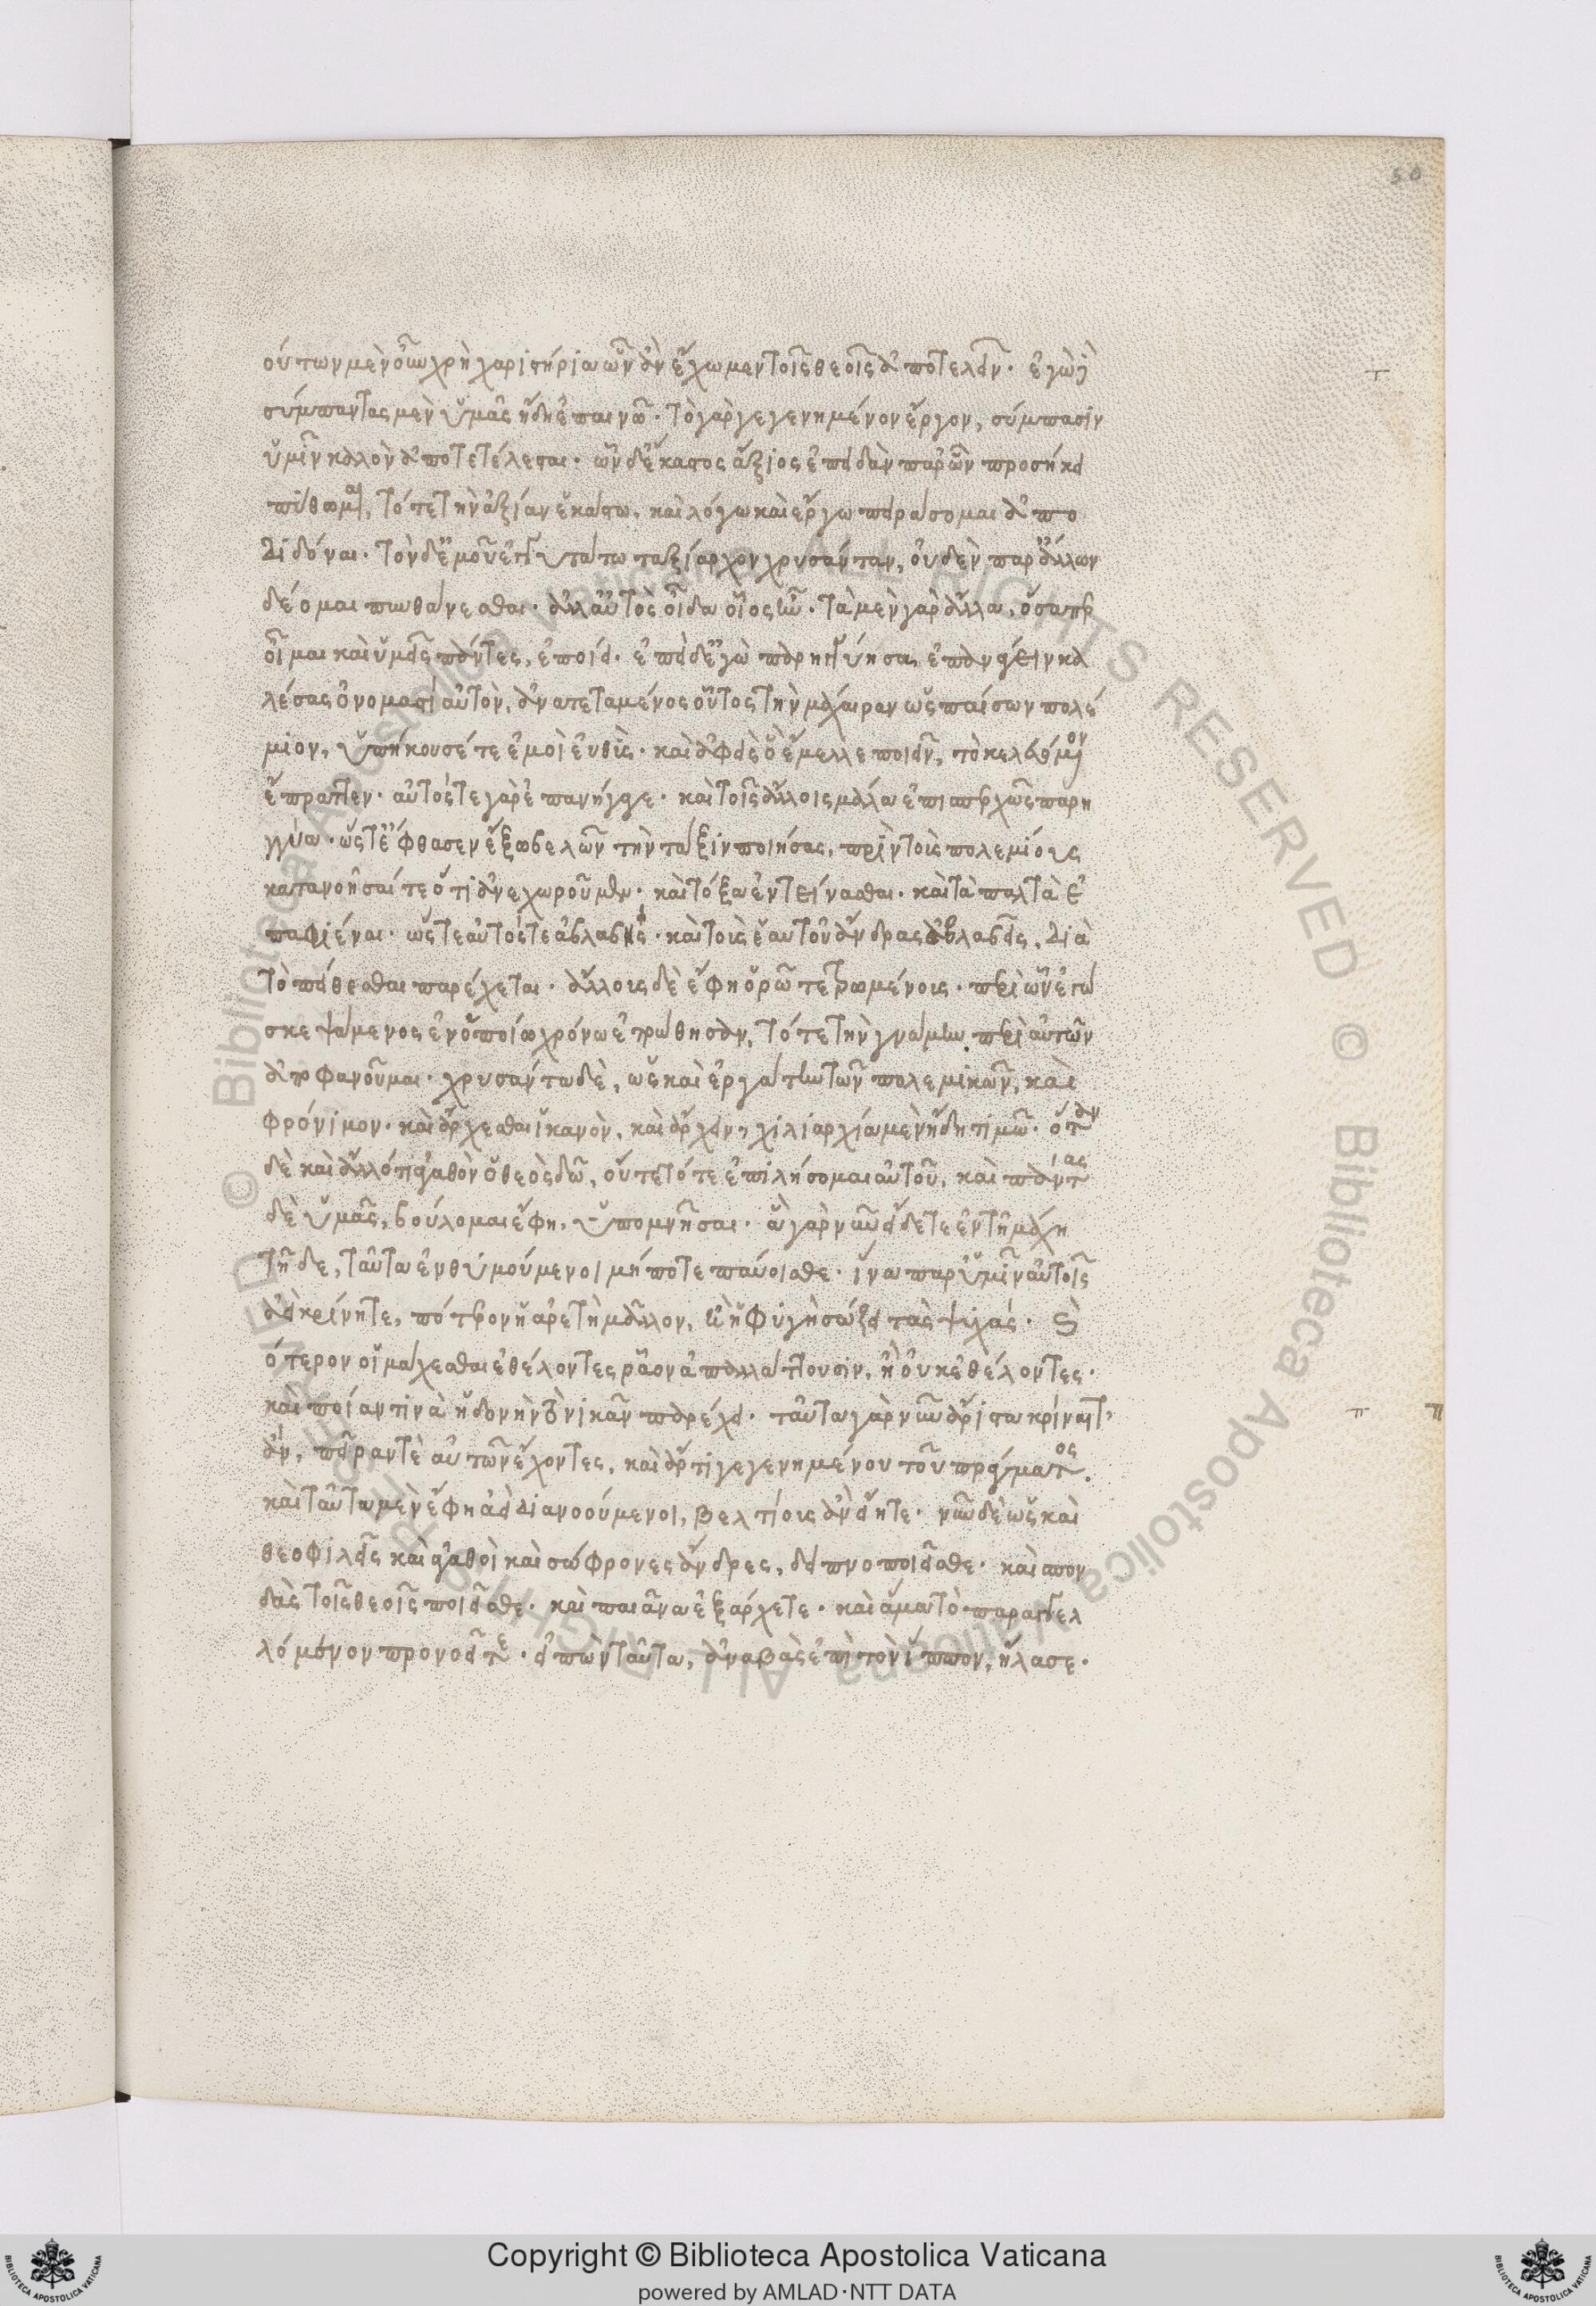 ούτων μὲν οὖν χρὴ χαριστήρια ὧν ἂν ἔχωμεν τοῖς θεοῖς ἀποτελεῖν· ἐγὼ δὲ
σύμπαντας μὲν ὑμᾶς ἤδη ἐπαινῶ· τὸ γὰρ γεγενημένον ἔργον, σύμπασιν
ὑμῖν καλὸν ἀποτετέλεσται· ὧν δ' ἕκαστος ἄξιος ἐπειδὰν παρ' ὧν προσήκει
πύθωμαι, τότε τὴν ἀξίαν ἑκάστω, καὶ λόγω καὶ ἔργω πειράσομαι ἀπο
διδόναι· τὸν δ' ἐμοῦ ἐγγυτάτω ταξίαρχον χρυσάνταν, οὐδὲν παρ' ἄλλων
δέομαι πυθάνεσθαι· ἀλλ' αὐτὸς οἶδα οἷος ἦν· τὰ μὲν γὰρ ἄλλα, ὅσαπερ
οἶμαι καὶ ὑμεῖς πάντες, ἐποίει· ἐπεὶ δ' ἐγὼ παρηγγύησα, ἐπανάγειν κα
λέσας ὀνομαστὶ αὐτὸν, ἀνατεταμένος οὗτος τὴν μάχαιραν ὡς παίσων πολέ
μιον, ὑπήκουσέ τε ἐμοὶ εὐθὺς· καὶ ἀφεὶς ὃ ἔμελλε ποιεῖν, τὸ κελευόμενον
ἔπραττεν· αὐτός τε γὰρ ἐπανήγαγε· καὶ τοῖς ἄλλοις μάλα ἐπισπερχῶς παρη
γγύα· ὥστ' ἔφθασεν ἔξω βελῶν τὴν τάξιν ποιήσας, πρὶν τοὺς πολεμίους
κατανοῆσαί τε ὅτι ἀνεχωροῦμεν· καὶ τόξα ἐντείνασθαι· καὶ τὰ παλτὰ ἐ
παφιέναι· ὥστε αὐτός τε ἀβλαβὴς· καὶ τοὺς ἑαυτοῦ ἄνδρας ἀβλαβεῖς, διὰ
τὸ πείθεσθαι παρέχεται· ἄλλους δὲ ἔφη ὁρῶ τετρωμένους· περὶ ὧν ἐγὼ
σκεψάμενος ἐν ὁποίω χρόνω ἐτρώθησαν, τότε τὴν γνώμην περὶ αὐτῶν
ἀποφανοῦμαι· χρυσάντω δὲ, ὡς καὶ ἐργάτην τῶν πολεμικῶν, καὶ
φρόνιμον· καὶ ἄρχεσθαι ἱκανὸν, καὶ ἄρχειν, χιλιαρχία μὲν ἤδη τιμῶ· ὅταν
δὲ καὶ ἄλλό τι ἀγαθὸν ὁ θεὸς δῶ, οὔτε τότε ἐπιλήσομαι αὐτοῦ, καὶ πάντας
δὲ ὑμᾶς, βούλομαι ἔφη, ὑπομνῆσαι· ἃ γὰρ νῦν εἴδετε ἐν τῆ μάχη
τῆδε, ταῦτα ἐνθυμούμενοι μήποτε παύσισθε· ἵνα παρ' ὑμῖν αὐτοῖς
ἀεὶ κρίνητε, πότερον ἡ ἀρετὴ μᾶλλον, ἢ ἡ φυγὴ σώζει τὰς ψυχάς·
ότερον οἱ μάχεσθαι ἐθέλοντες ῥᾶον ἀπαλλάττουσιν, ἢ οὐκ ἐθέλοντες·
καὶ ποίαν τινὰ ἡδονὴν τὸ νικᾶν παρέχει· ταῦτα γὰρ νῦν ἄριστα κρίναιτ'
ἄν, πεῖράν τε αὐτῶν ἔχοντες, καὶ ἄρτι γεγενημένου τοῦ πράγματος.
καὶ ταῦτα μὲν ἔφη ἀεὶ διανοούμενοι, βελτίους ἂν εἴητε· νῦν δὲ ὡς καὶ
θεοφιλεῖς καὶ ἀγαθοὶ καὶ σώφρονες ἄνδρες, δειπνοποιεῖσθε· καὶ σπον
δὰς τοῖς θεοῖς ποιεῖσθε· καὶ παιᾶνα ἐξάρχετε· καὶ ἅμα τὸ παραγγελ
λόμενον προνοεῖτε· εἰπὼν ταῦτα, ἀναβὰς ἐπὶ τὸν ἵππον, ἤλασε·
50
Copyright © Biblioteca Apostolica Vaticana
powered by AMLAD·NTT DATA